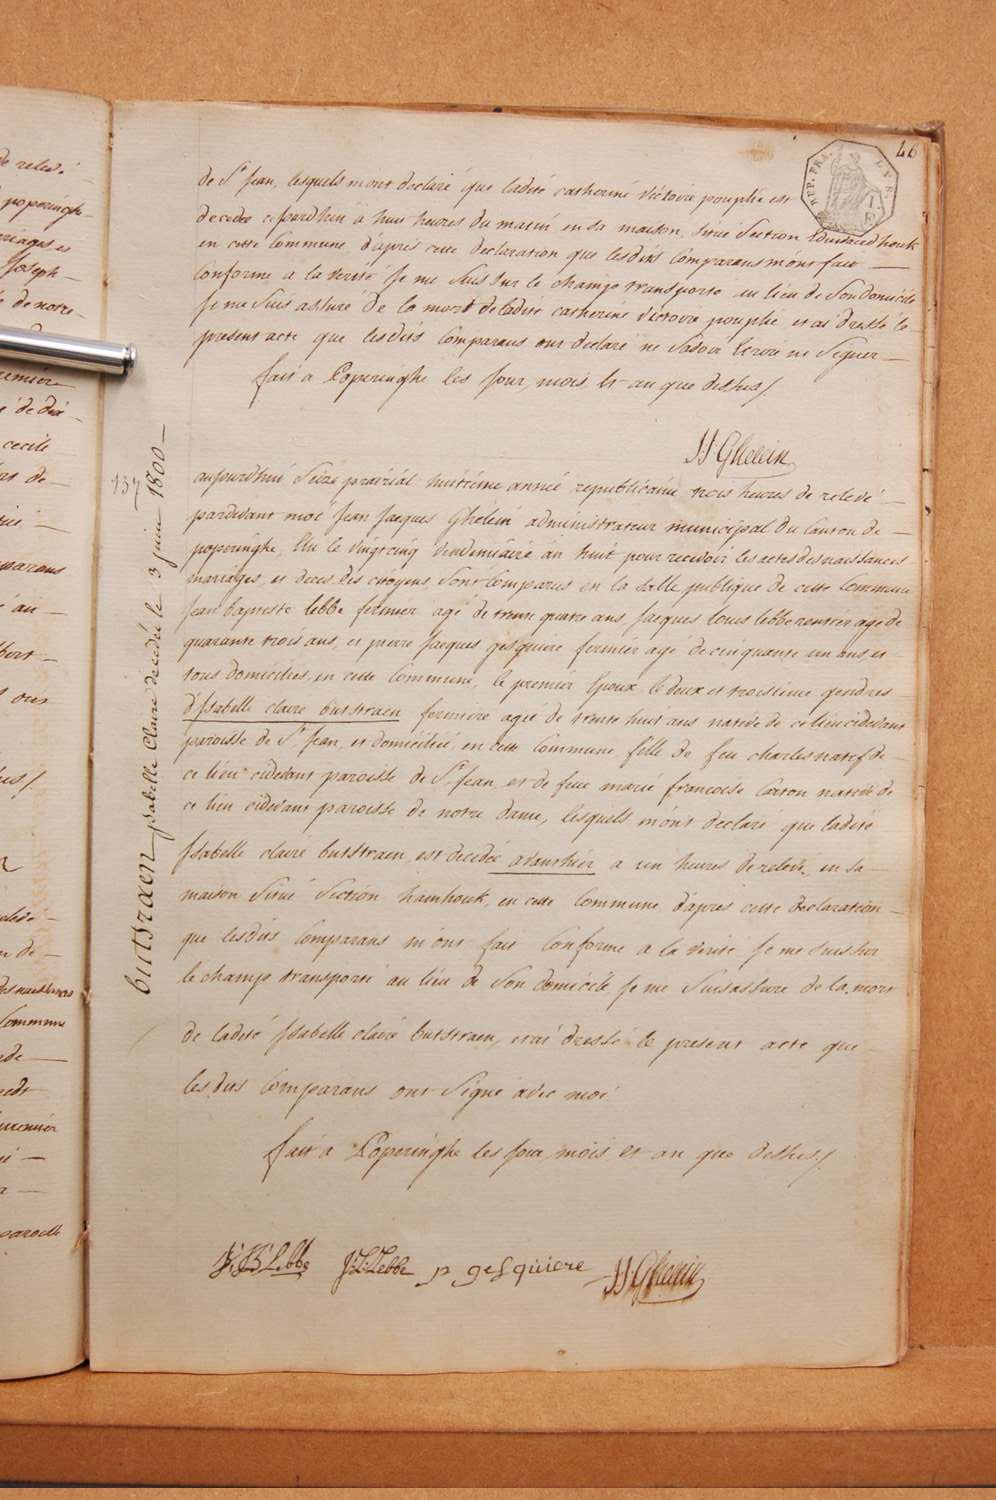 46
REP. FRA.
de St jean, lesquels mont declaré que ladite catherine victoire pouplie est
decedée cejourdhui à huit heures du matin en sa maison, situé Section
en cette Commune d'après cette declaration que lesdits Comparans mont fait
Conforme a la verité je me suis sur le champs transporté au lieu de son domicile
je me suis assuré de la mort de ladite catherine victoire pouplie et ai dressé le
present acte que lesdits Comparans ont declaré ne savoir Ecrire ne signer
fait a Poperinghe les jour, mois Et an que dessus /.
JJ Ghelein
137
butstraen isabelle Claire decedée le 3 juin 1800
aujourdhui Seize prairial huitieme année republicaine trois heures de relevé
pardevant moi Jean Jacques Ghelein administrateur municipal du Canton de
poperinghe, Elu le vingt cinq Vendemiaire an huit pour recevoir les actes des naissances
mariages, et deces des citoyens sont Comparus en la salle publique de cette Commune
jean baptiste lebbe fermier agé de trente quatre ans jacques louis lebbe rentier agé de
quarante trois ans, et pierre jacques gesquiere fermier agé de cinquante un ans et
tous domiciliés en cette Commune, le premier Epoux le deux et troisieme gendres
d'Isabelle claire butstraen fermiere agée de trente huit ans native de ce lieu cidevant
paroisse de St jean, et domiciliée en cette Commune, fille de feu charles natif de
ce lieu cidevant paroisse de St jean, et de feue marie francoise Carton native de
ce lieu cidevant paroisse de notre dame, lesquels m'ont declaré que ladite
Isabelle claire butstraen est decedée avanthier a un heures de relevé, en sa
maison Situé Section hamhouk, en cette Commune, d'apres cette declaration
que lesdits Comparans m'ont fait Conforme a la verité je me suis sur
le champs transporté au lieu de Son domicile je me Suis assuré de la mort
de ladite Isabelle claire butstraen, et ai dressé le present acte que
lesdits Comparans ont Signé avec moi
fait a Poperinghe les jour, mois, et an que dessus /.
J: B: Lebbe J: L: Lebbe p gesquiere JJ Ghelein